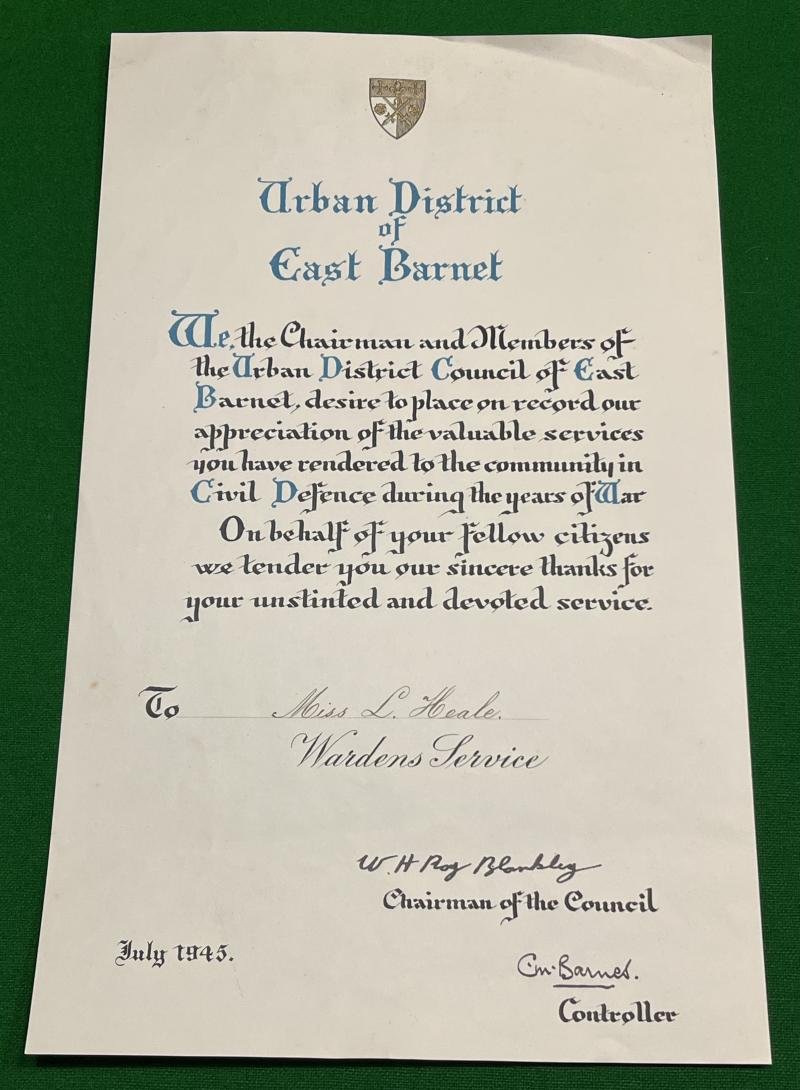 Urban District
of
East Barnet
We, the Chairman and Members of
the Urban District Council of East
Barnet, desire to place on record our
appreciation of the valuable services
you have rendered to the community in
Civil Defence during the years of War
On behalf of your fellow citizens
we tender you our sincere thanks for
your unstinted and devoted service.
To Miss L. Heale.
Wardens Service
W. H Roy Blankley
Chairman of the Council
July 1945.
C.M. Barnes.
Controller